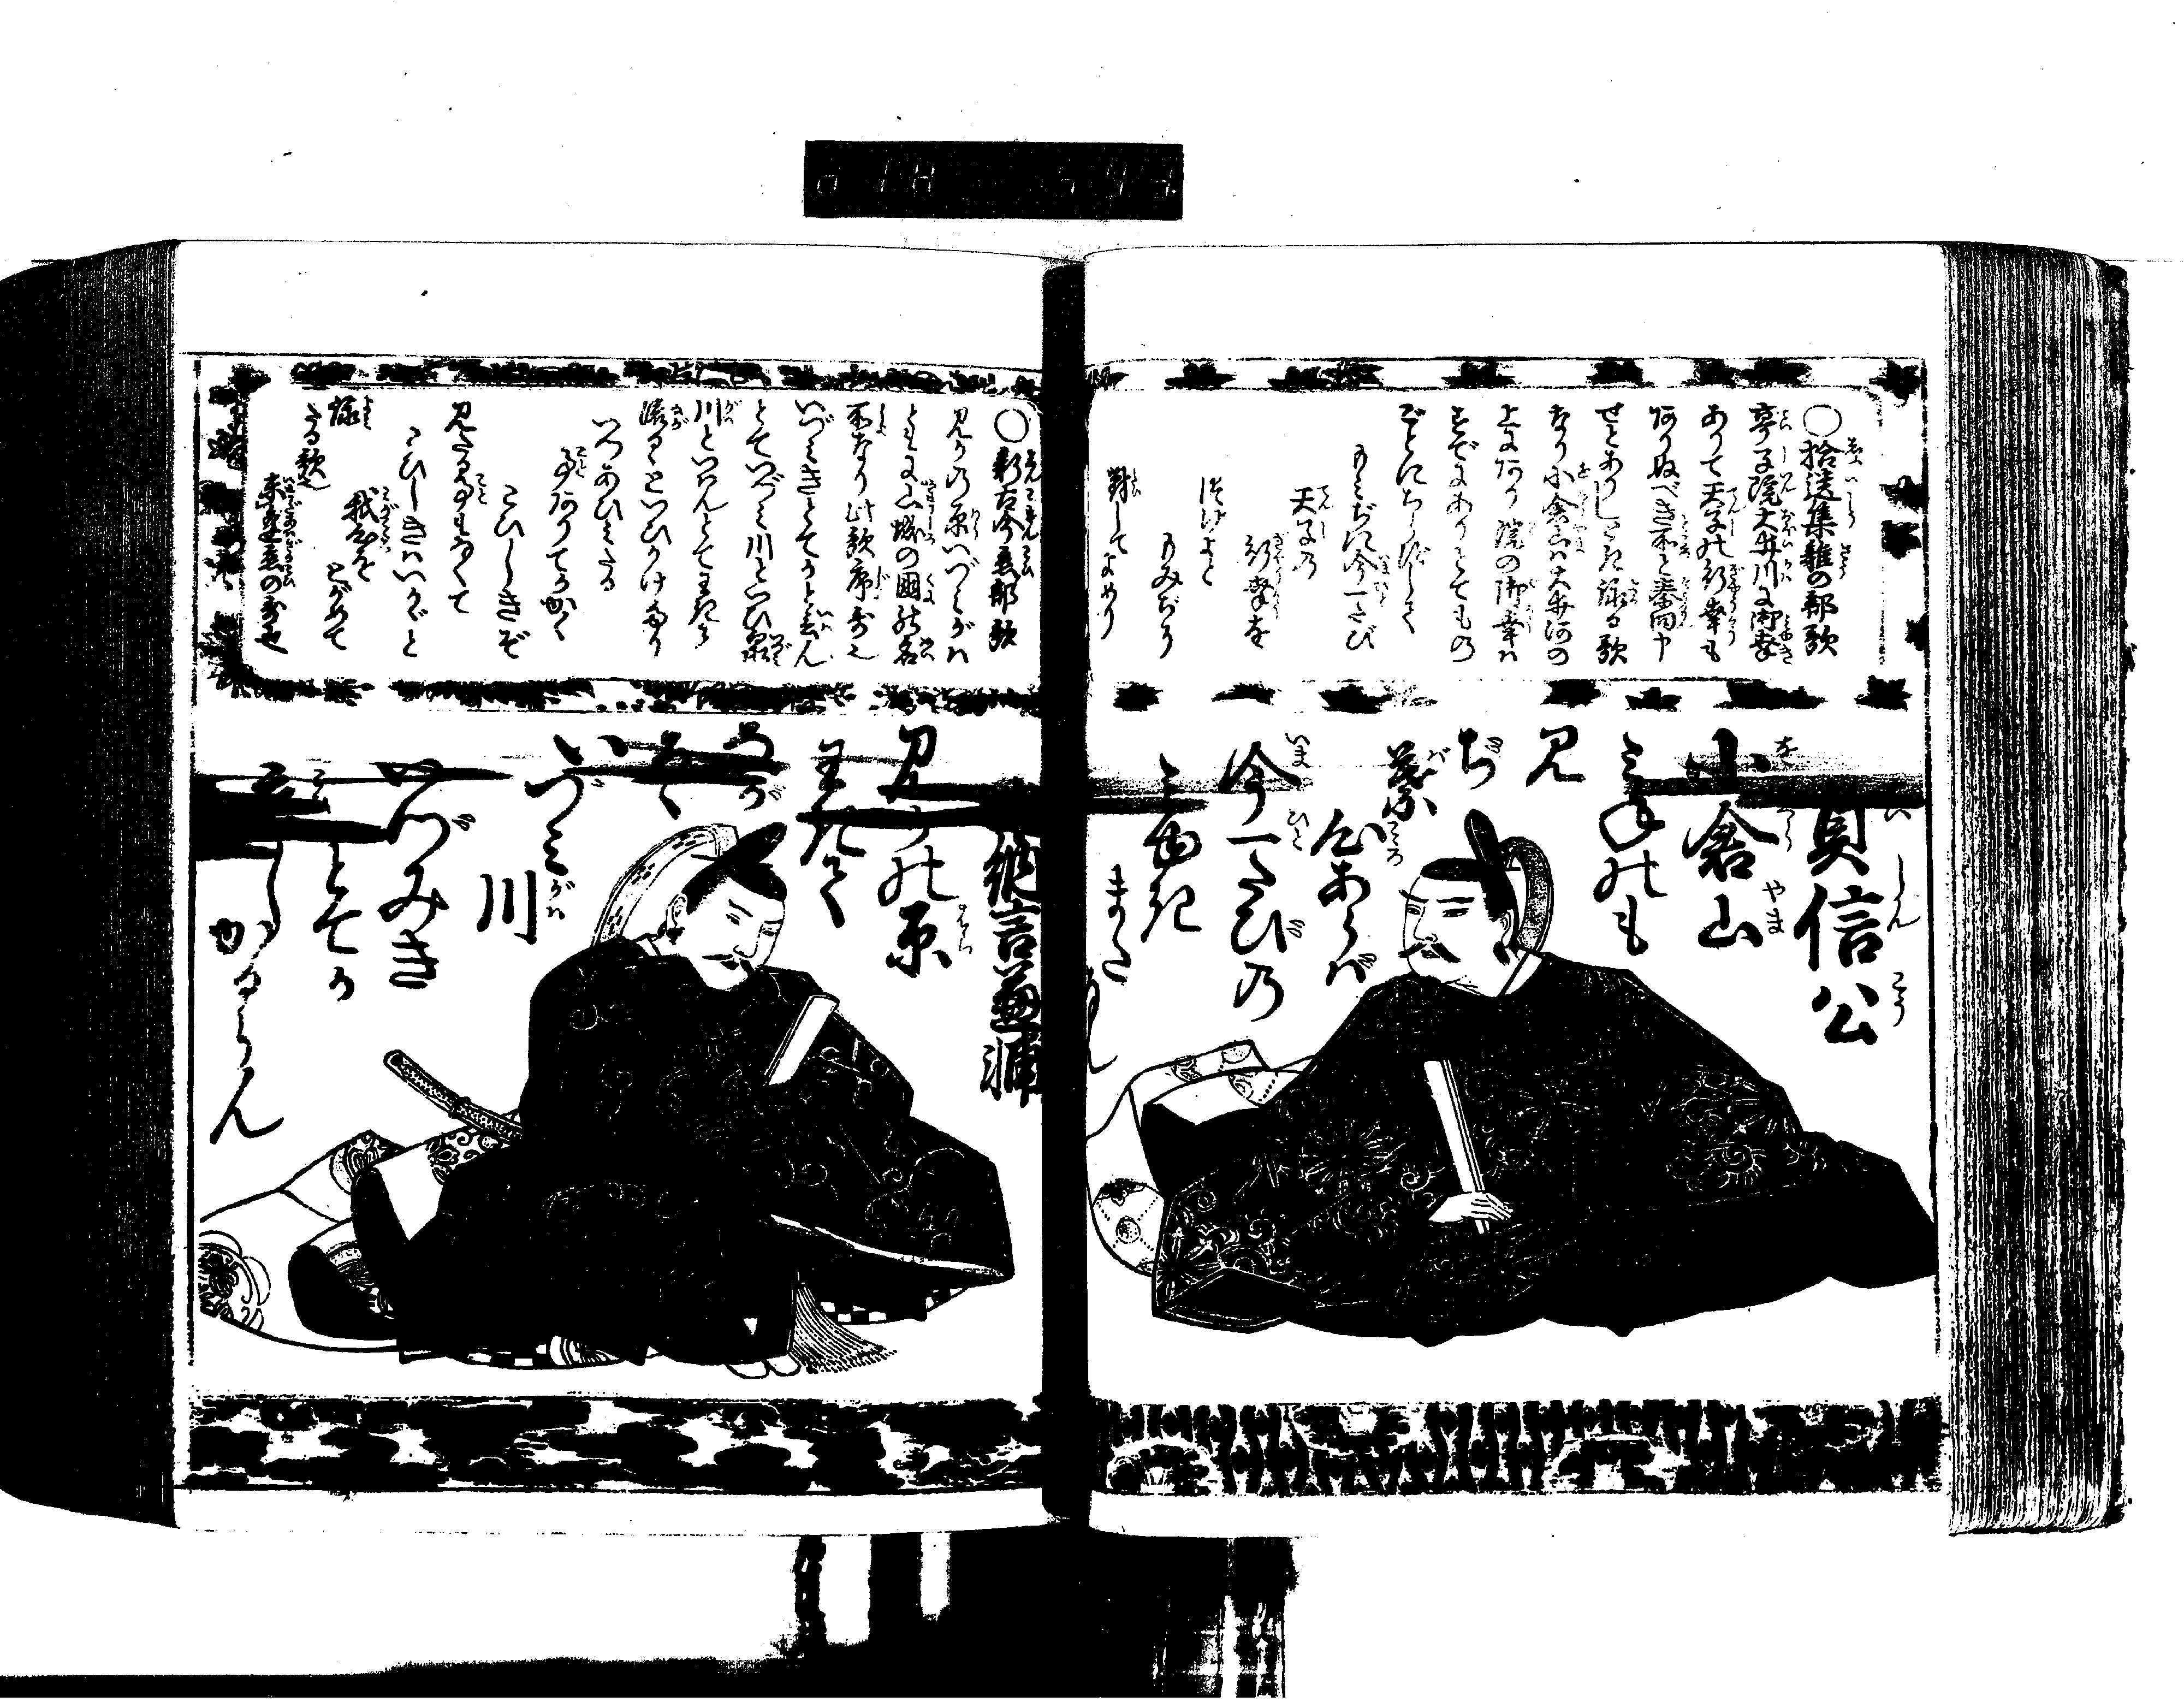 ○拾遺集雑の部歌
亭子院大井川に御幸
ありて天子の行幸も
ありぬべき所と奏問申
せとありしとき詠る歌
なり小倉山は大井河の
上にあり院の御幸は
すでにありとてもの
ごとにちらずして
もみぢに今一たび
天子の
行幸を
まけよと
もみぢに
對してよめり
貞信公
小倉山
みねのも
み
ぢ
葉
心あらば
今一たびの
みゆき
また
なん
○新古今恋部歌
見かの原いづみがは
ともに山城の国の名
所なり此歌序哥也
いづみきとてかと云ん
とていづみ川といひ泉
川といはんとてわきて
流るといひかけたり
いつあひみたる
事ありてかかく
こひしきぞ
見たる事もなくて
こひしきはいかゞと
我心を
とがめて
詠
たる歌也
未逢恋の哥也
納言兼輔
みかの原
わきて
なが
るゝ
いづみ
川
いつみき
とてか
恋
しかるらん